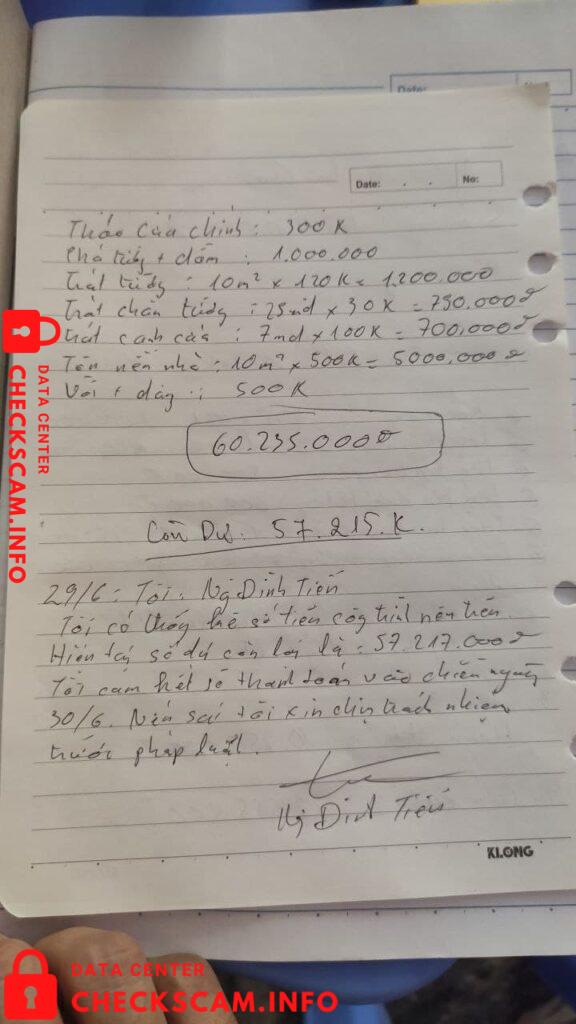 Date:
Date: . . No:
Tháo cửa chính : 300K
Phá tường + dầm : 1.000.000
Trát tường : 10m² x 120K = 1.200.000
Trát chân tường : 25md x 30K = 750.000đ
trát cạnh cửa : 7md x 100K = 700,000đ
nền nhà : 10m² x 500K = 5000,000đ
+ : 500K
60.235.000đ
Còn Dư: 57.215.K.
29/6: Tôi: Ng Đình Tiến
Tôi có số tiền công trình nêu trên
Hiện tại số dư còn lại là : 57.217.000đ
Tôi cam kết sẽ thanh toán vào chiều ngày
30/6. Nếu sai tôi xin chịu trách nhiệm
trước pháp luật.
Ng Đình Tiến
KLONG
DATA CENTER
CHECKSCAM.INFO
DATA CENTER
CHECKSCAM.INFO